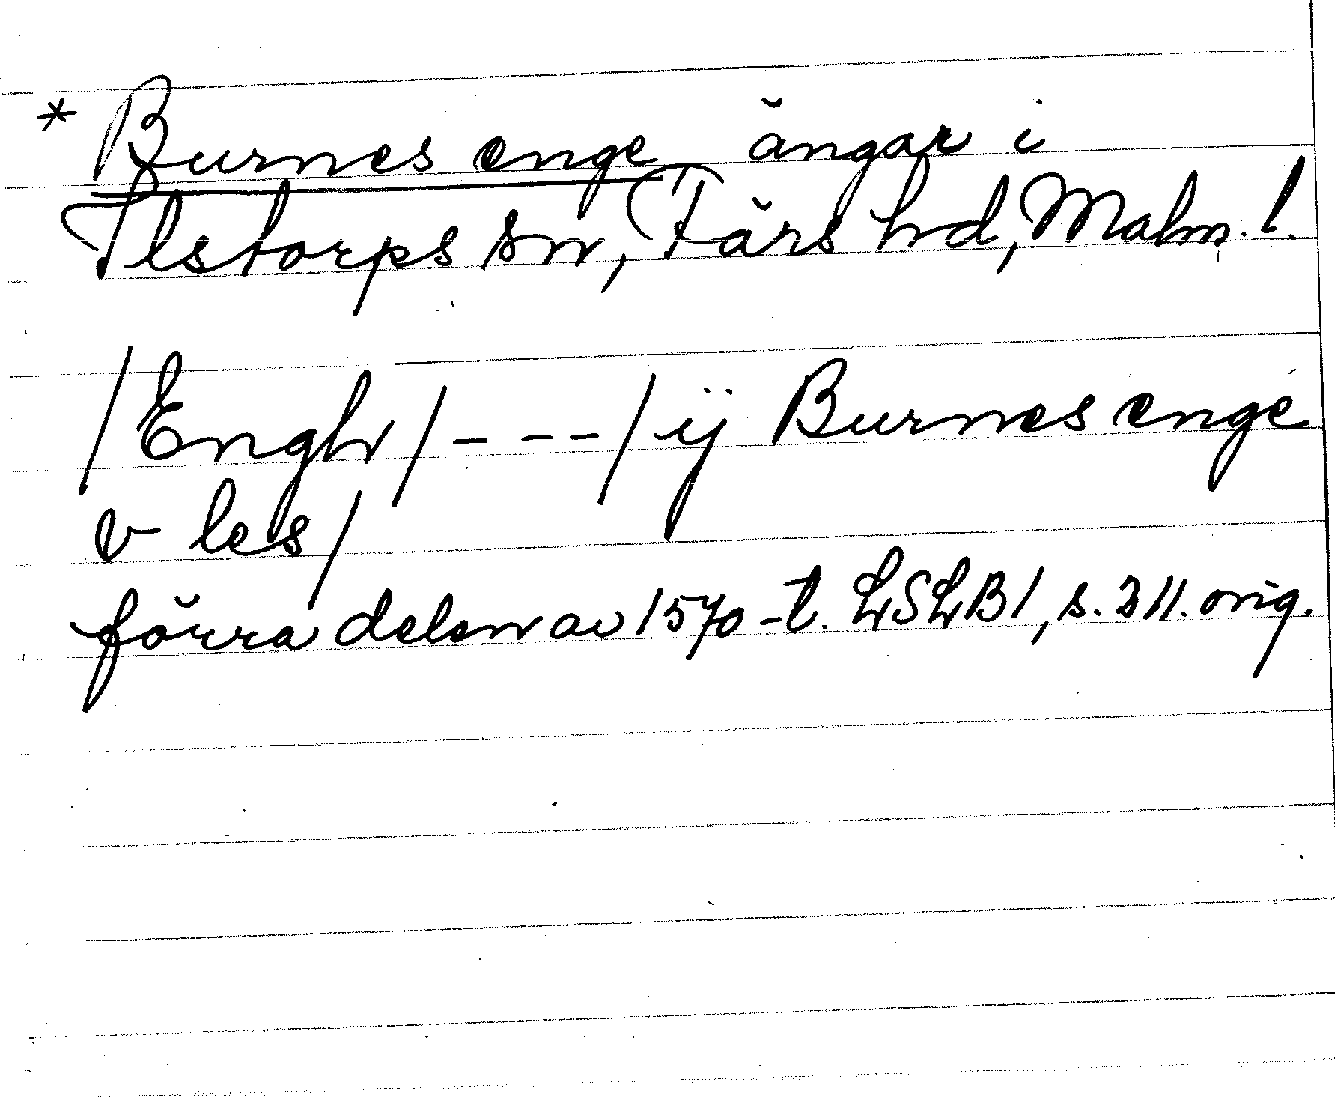 * Burnes enge ängar i
Ilstorps sn, Färs hd, Malm. l.
/Engh/ - - - / ij Burnes enge
v les/
förra delen av 1570-t. LSLB1, s. 311. orig.